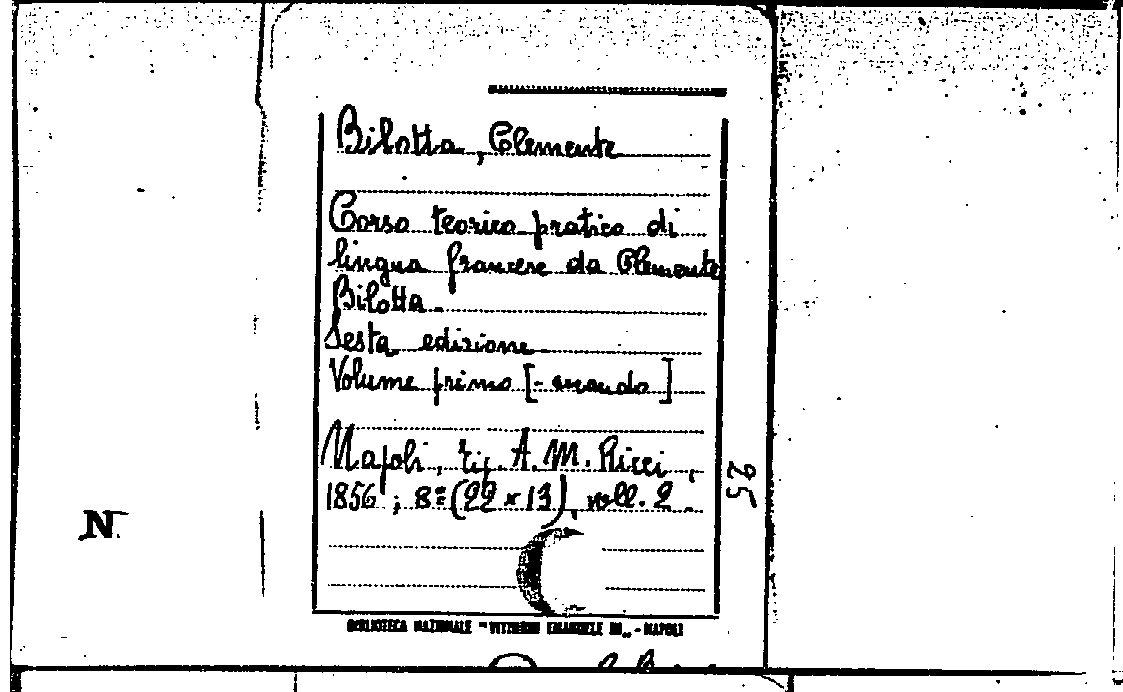 Bilotta, Clemente
Corso teorico pratico di
lingua francese da Clemente
Bilotta.
Sesta edizione
Volume primo [- secondo]
Napoli, tip. A. M. Ricci,
1856; 8° (22 x 13), voll. 2.
25
N.
BIBLIOTECA NAZIONALE "VITTORIO EMANUELE III" - NAPOLI